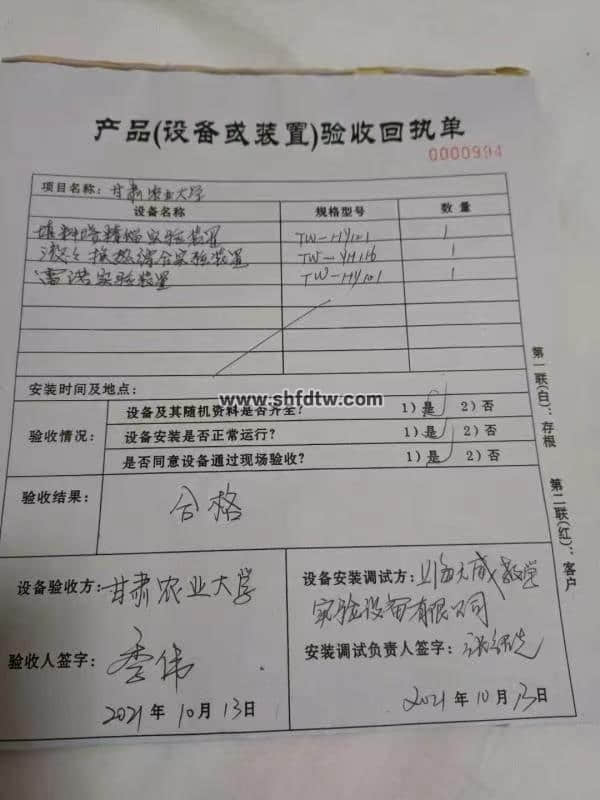 产品(设备或装置)验收回执单
0000994
项目名称: 甘肃农业大学
设备名称 规格型号 数量
填料塔精馏实验装置 TW-HY121 1
换热综合实验装置 TW-YH116 1
雷诺实验装置 TW-HY101 1
安装时间及地点:
www.shfdtw.com
验收情况: 设备及其随机资料是否齐全? 1)是 2)否
设备安装是否正常运行? 1)是 2)否
是否同意设备通过现场验收? 1)是 2)否
验收结果: 合格
设备验收方: 甘肃农业大学
验收人签字: 李伟
2021年10月13日
设备安装调试方: 上海大威教学
实验设备有限公司
安装调试负责人签字:
2021年10月13日
第一联(白): 存根
第二联(红): 客户